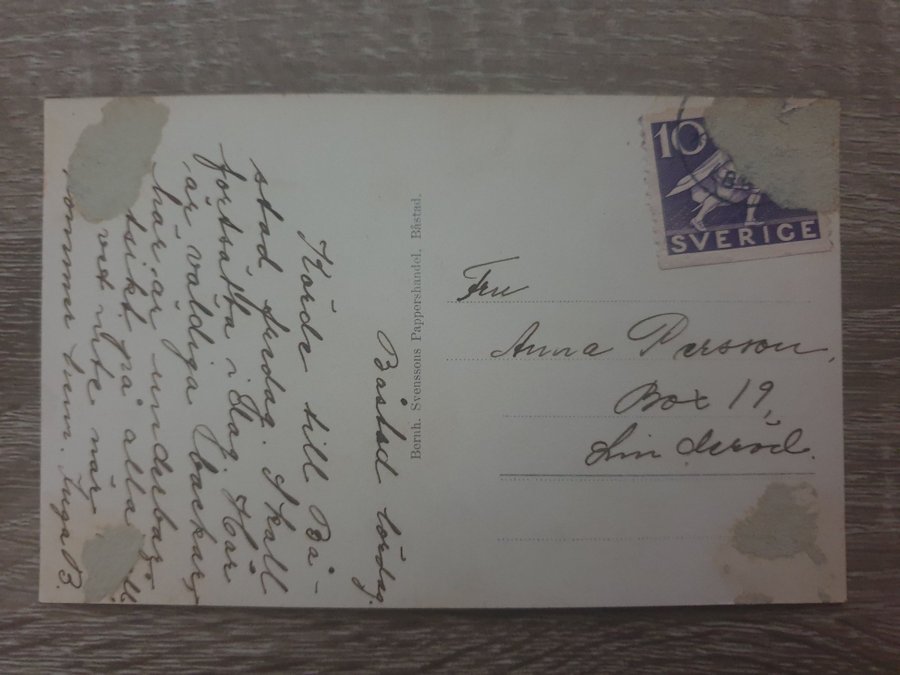 Båstad lördag.
Körde till Bå-
stad fredag. Skall
fortsätta i dag. Här
är väldiga backar,
här är underbar
utsikt på alla
vet inte när
kommer hem. Inga B.
Bernh. Svenssons Pappershandel, Båstad.
10
SVERIGE
Fru
Anna Persson,
Box 19,
Linderöd.